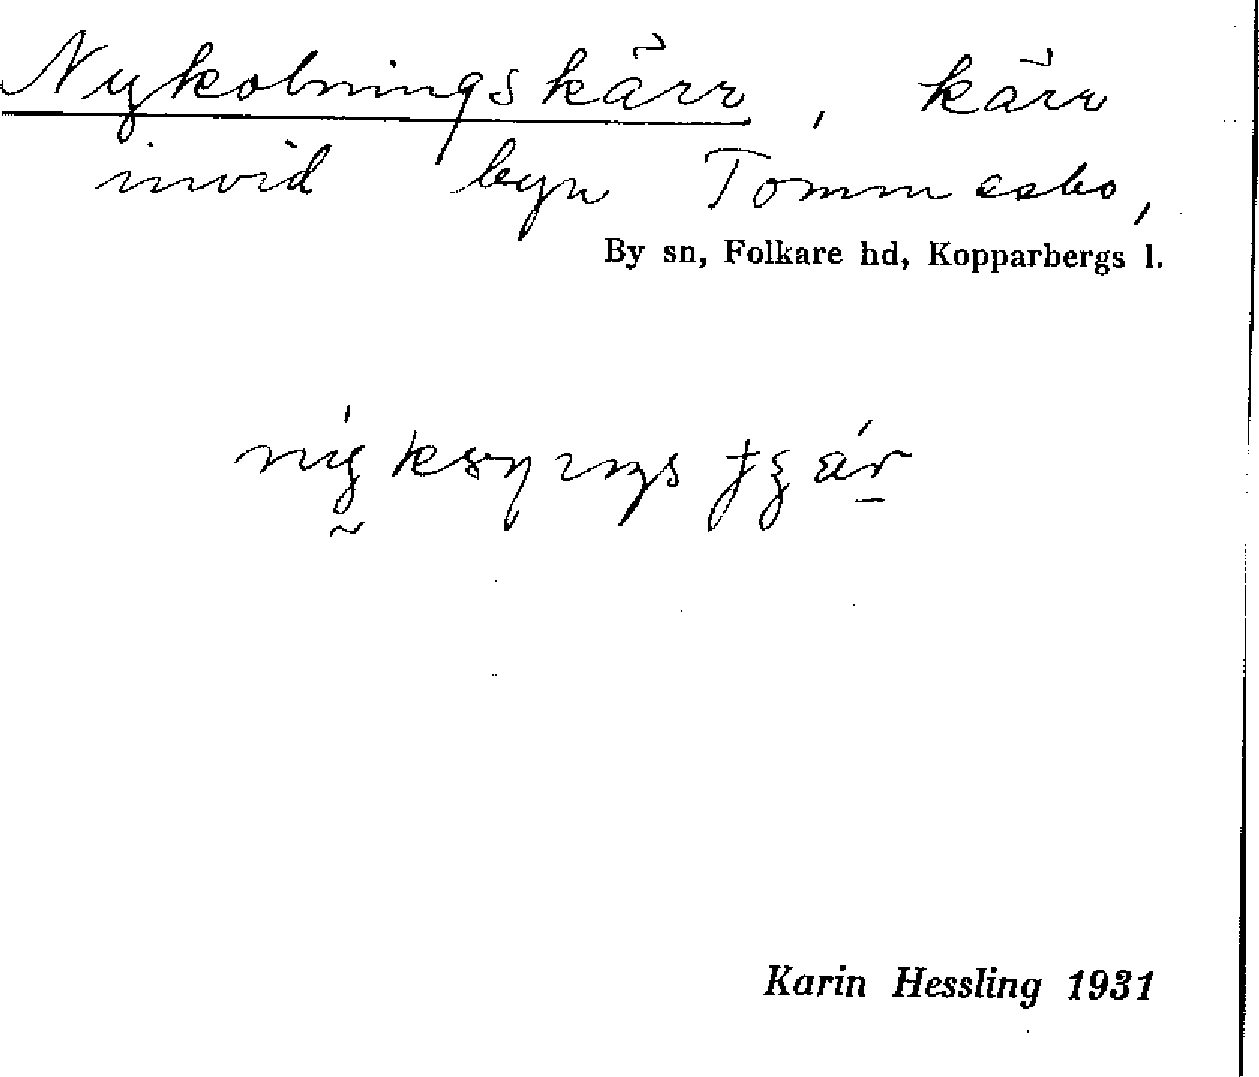 Nykolningskärr, kärr
invid byn Tommesbo,
By sn, Folkare hd, Kopparbergs l.
Karin Hessling 1931